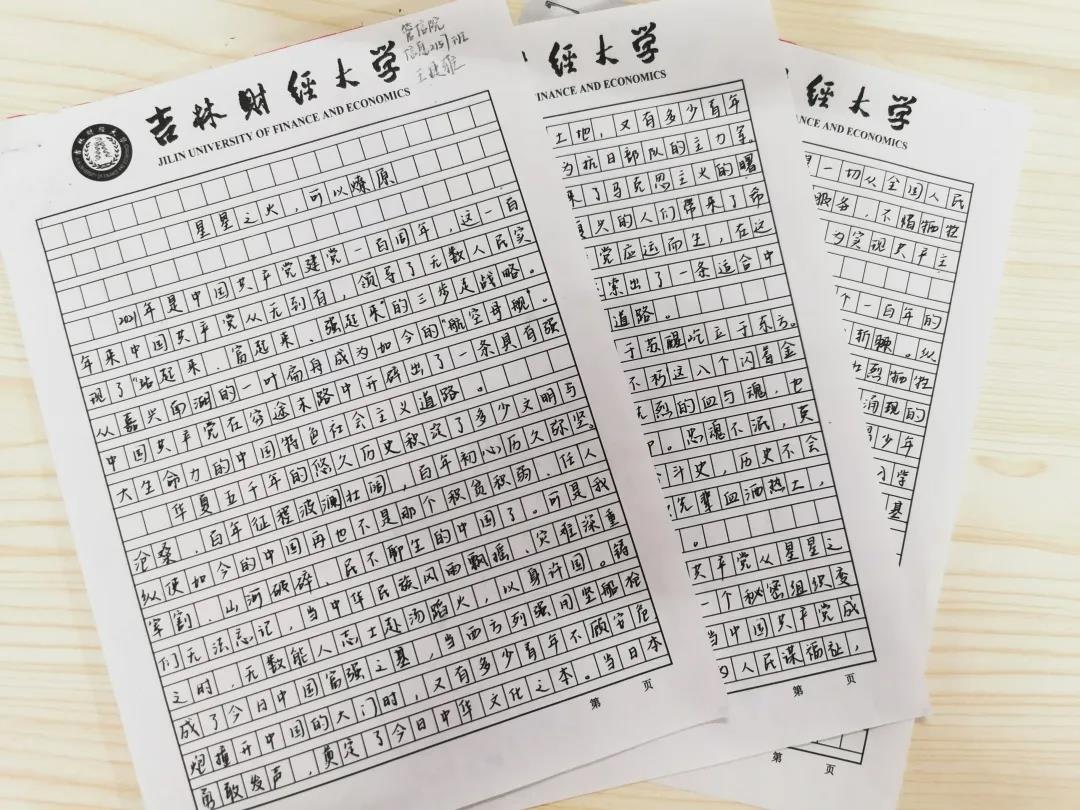 管信院
信息2157班
吉林财经大学
JILIN UNIVERSITY OF FINANCE AND ECONOMICS
星星之火，可以燎原
2021年是中国共产党建党一百周年，这一百
年来中国共产党从无到有，领导了无数人民实
现了“站起来、富起来、强起来”的三步走战略。
从嘉兴南湖的一叶扁舟成为如今的“航空母舰”。
中国共产党在穷途末路中开辟出了一条具有强
大生命力的中国特色社会主义道路。
华夏五千年的悠久历史积淀了多少文明与
沧桑，百年征程波澜壮阔，百年初心历久弥坚。
纵使如今的中国再也不是那个积贫积弱、任人
宰割、山河破碎、民不聊生的中国了。可是我
们无法忘记，当中华民族风雨飘摇、灾难深重
之时，无数能人志士赴汤蹈火，以身许国。铸
成了今日中国富强之基，当西方列强用坚船枪
炮撞开中国的大门时，又有多少青年不顾安危
勇敢发声，奠定了今日中华文化之本。当日本
第 页
经大学
FINANCE AND ECONOMICS
土地，又有多少青年
为抗日部队的主力军。
来了马克思主义的曙
复兴的人们带来了希
党应运而生，在这
索出了一条适合中
道路。
于苏醒屹立于东方。
不朽这八个闪着金
先烈的血与魂，也
。忠魂不泯，英
斗史，历史不会
先辈血洒热土，
。
共产党从星星之
一个秘密组织变
当中国共产党成
为人民谋福祉，
第 页
经大学
NANCE AND ECONOMICS
一切从全国人民
服务，不怕牺牲
为实现共产主
个一百年的
斩棘。纵
烈牺牲
涌现的
少年
习学
基
第 页